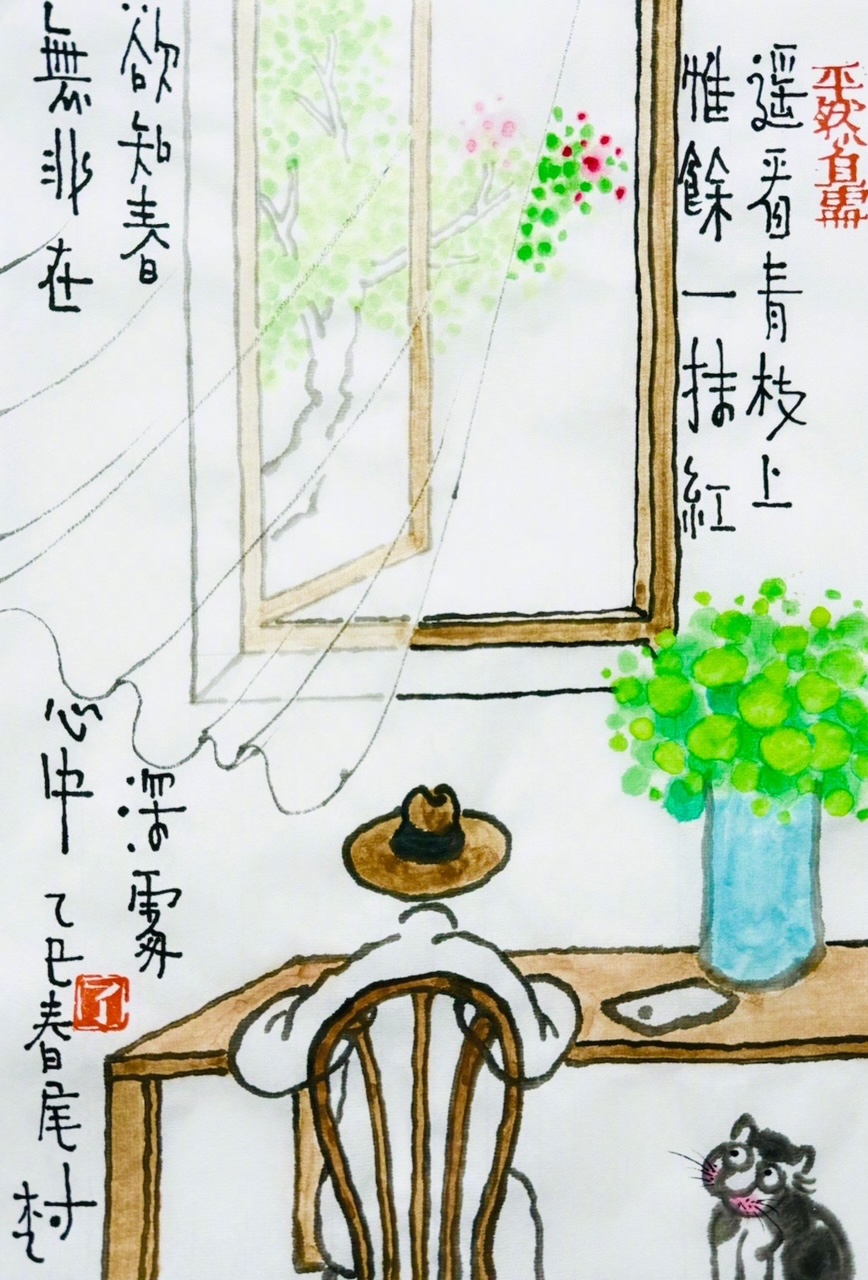 遙看青枝上
惟餘一抹紅
欲知春深處
無非在心中
乙巳春尾村
了